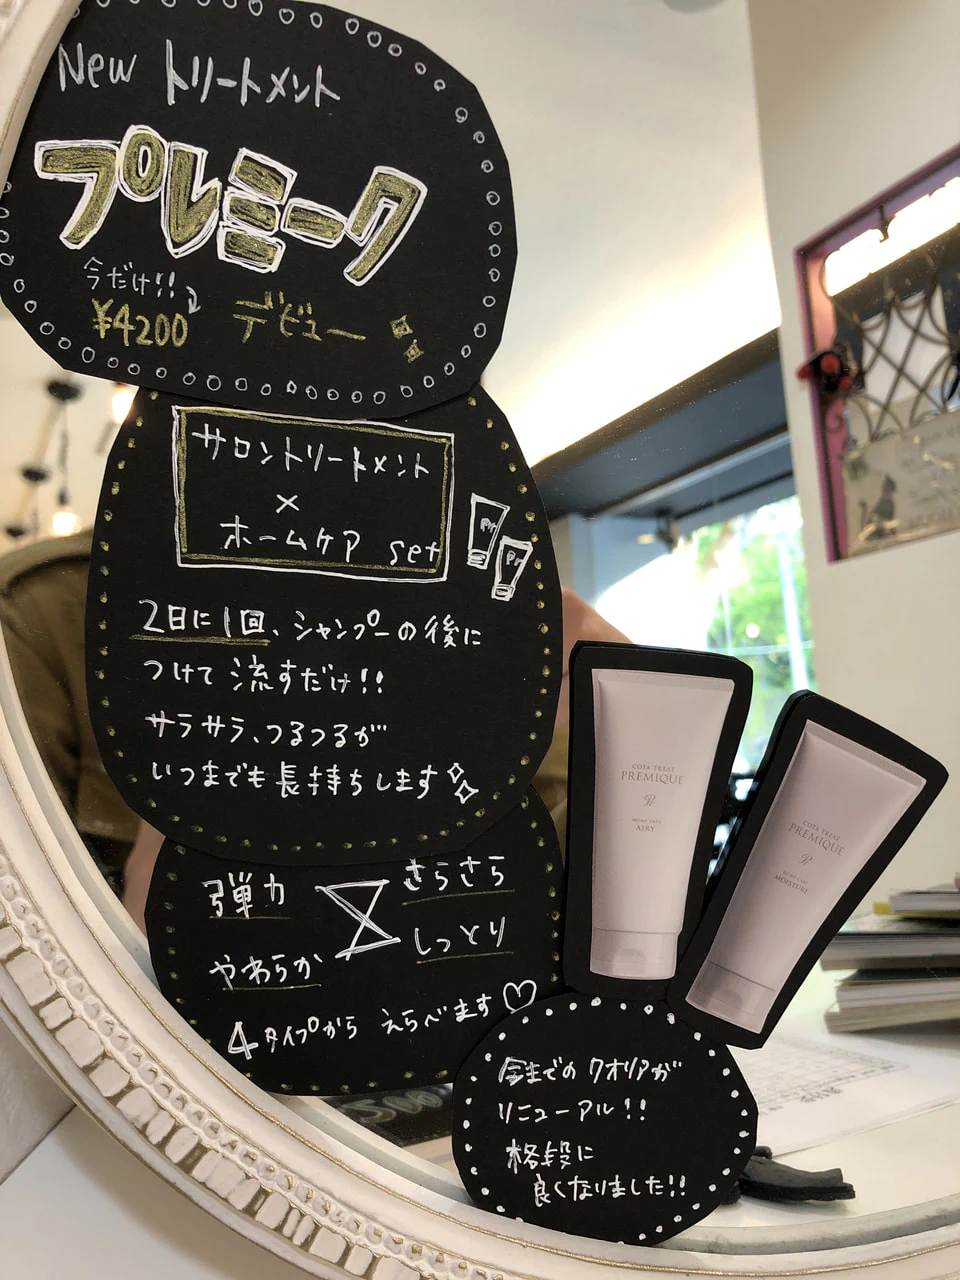 New トリートメント
プレミーク
今だけ!!
¥4200 デビュー
サロントリートメント
×
ホームケア set
Pr
Pr
2日に1回、シャンプーの後に
つけて流すだけ!!
サラサラ、つるつるが
いつまでも長持ちします
弾力 さらさら
やわらか しっとり
4タイプから えらべます♡
COTA TREAT
PREMIQUE
HOME CARE
AIRY
COTA TREAT
PREMIQUE
HOME CARE
MOISTURE
今までのクオリアが
リニューアル!!
格段に
良くなりました!!